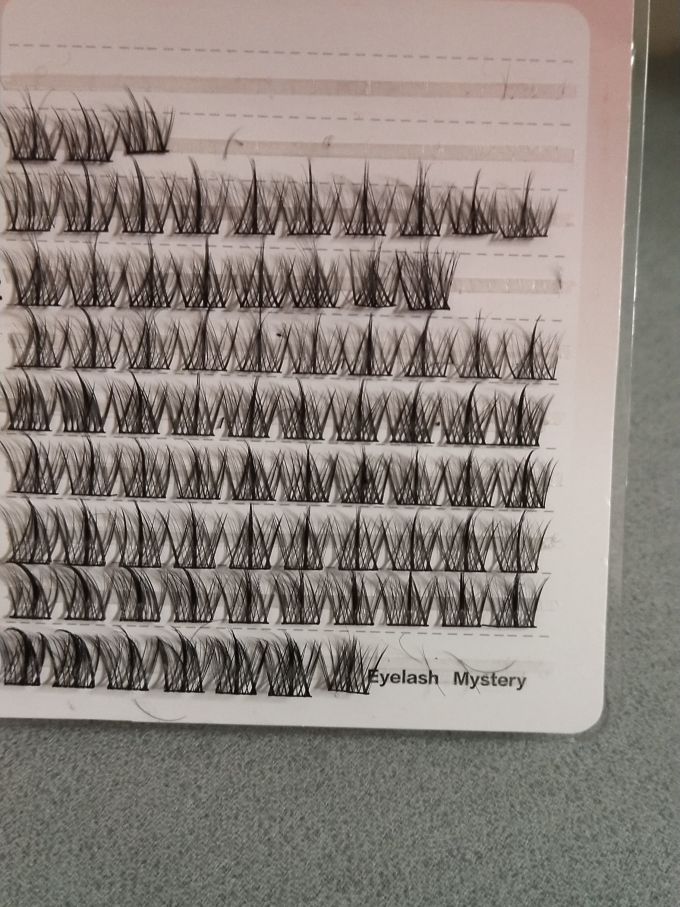 Eyelash Mystery